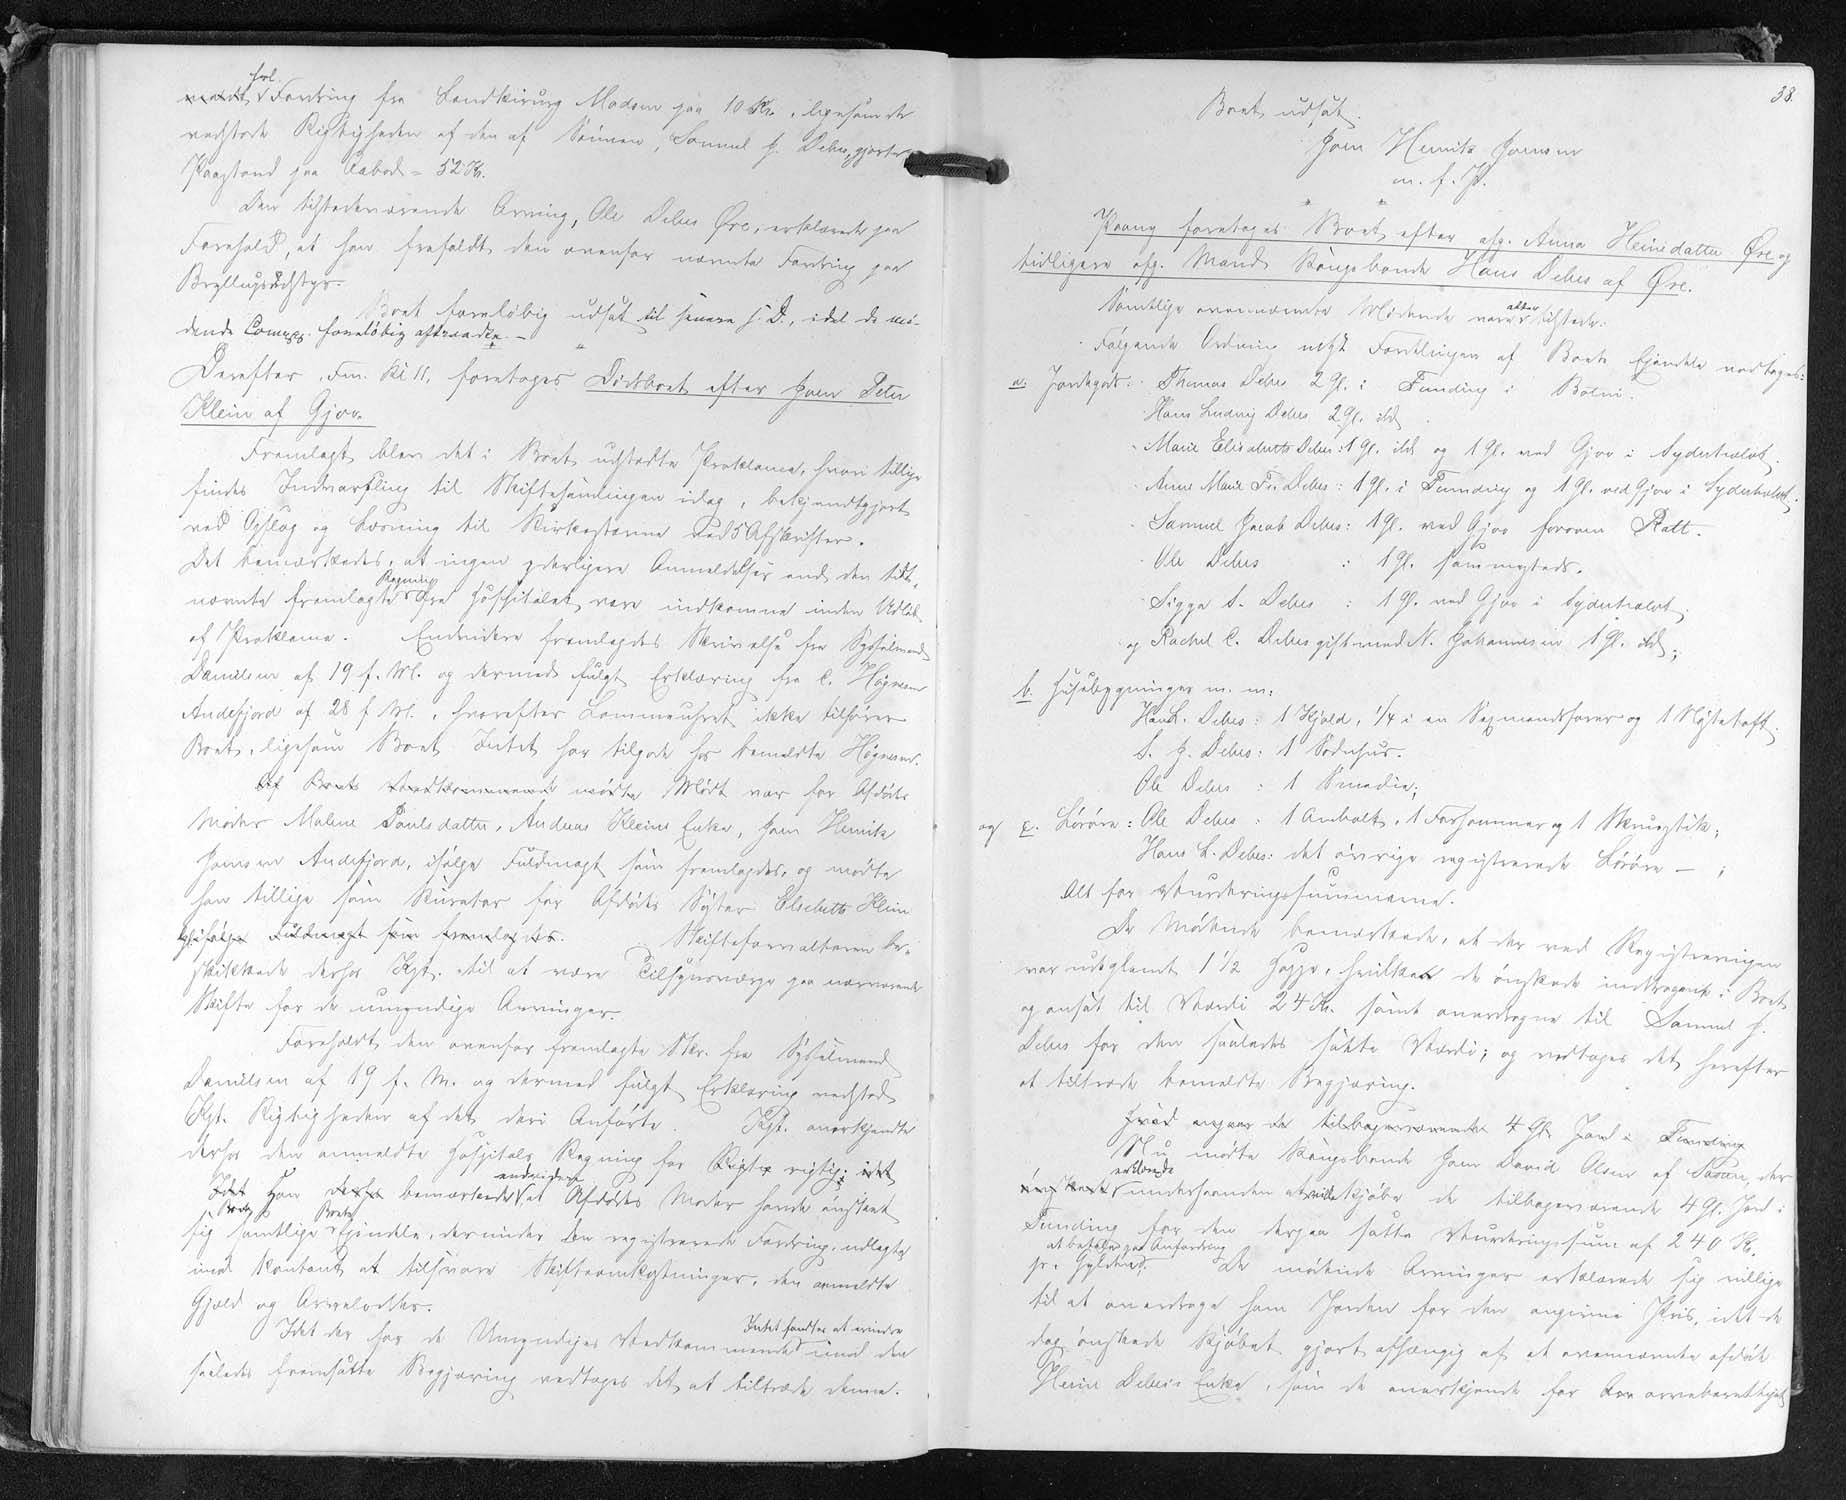 frl.
Fordring fra Landkirurg Madsen paa 10 Kr., ligesom de
vedstod Rigtigheden af den af Sønnen, Samuel J. Debes, gjorte
Paastand paa Aabod = 52 Kr.
Den tilstedeværende Arving, Ole Debes Øre, erklærede paa
Forehold, at han frafaldt den ovenfor nævnte Fordring paa
Bryllupsudstyr.
Boet foreløbig udsat til senere s. D., idet de mø-
dende foreløbig aftraadte. -
Derefter, Fm. Kl 11, foretoges Dødsboet efter Joen Peter
Klein af Gjov.
Fremlagt blev det i Boet udstedte Proklama, hvori tillige
findes Indvarsling til Skiftesamlingen idag, bekjendtgjort
ved Opslag og Læsning til Kirkestævne ved 5 Afskrifter.
Det bemærkedes, at ingen yderligere Anmeldelser end den tidt-
nævnte fremlagte Regning fra Hospitalet vare indkomne inden Udløb
af Proklama. Endvidere fremlagdes Skrivelse fra Sysselmand
Danielsen af 19 f. M. og dermed fulgt Erklæring fra C. Høgnesen
Andefjord af 28 f. M., hvorefter Lommeuhret ikke tilhører
Boet, ligesom Boet Intet har tilgode hos bemeldte Høgnesen.
Af Boets Vedkommende mødte Mødt var for Afdødes
Moder Malene Poulsdatter, Andreas Kleins Enke, Joen Henrik
Joensen Andefjord, ifølge Fuldmagt som fremlagdes, og mødte
han tillige som Kurator for Afdødes Søster Elsebeth Klein
ifølge Fuldmagt som fremlagdes. Skifteforvalteren be-
skikkede derhos Kpt. til at være Tilsynsværge paa nærværende
Skifte for de umyndige Arvinger.
Foreholdt den ovenfor fremlagte Skr. fra Sysselmand
Danielsen af 19 f. M. og dermed fulgt Erklæring vedstod
Kpt. Rigtigheden af det deri Anførte. Kpt. anerkjendte
derhos den anmeldte Hospitals Regning for rigtig; idet
Idet Han derhos bemærkede endvidere, at Afdødes Moder havde ønsket
sig samtlige Boets Ejendele, derunder den registrerede Fordring, udlagte
imod kontant at tilsvare Skifteomkostninger, den anmeldte
Gjæld og Arvelodder.
Idet der for de Umyndiges Vedkommende Intet fandtes at erindre imod den
saaledes fremsatte Begjæring vedtoges det at tiltræde denne.
38.
Boet udsat.
Joen Henrik Joensen
m. f. P.
Paany foretoges Boet efter afg. Anna Heinedatter Øre og
tidligere afg. Mand Kongsbonde Hans Debes af Øre.
Samtlige ovennævnte Mødende vare atter tilstede.
Følgende Ordning mht Fordelingen af Boets Ejendele vedtoges:
a. Jordegods: Thomas Debes 2 Gl. i Funding i Botni.
Hans Ludvig Debes 2 Gl. ibd
Marie Elisabeth Debes: 1 Gl. ibd og 1 Gl. ved Gjov i Sydertralvt.
Anne Marie Fr. Debes: 1 Gl. i Funding og 1 Gl. ved Gjov i Sydertralvt.
Samuel Jacob Debes: 1 Gl. ved Gjov
Ole Debes : 1 Gl. sammesteds.
Sigga S. Debes : 1 Gl. ved Gjov i Sydertralvt.
og Rachel C. Debes gift med N. Johannesen 1 Gl. ibd;
b. Husebygninger m. m:
Hans L. Debes: 1 Hjald, 1/4 i en Sexmandsfarer og 1 Nøstetoft.
S. J. Debes: 1 Sodnhus.
Ole Debes : 1 Smedie;
og c. Løsøre: Ole Debes : 1 Ambolt, 1 Forhammer og 1 Skruestik;
Hans L. Debes: det øvrige registrerede Løsøre - ;
Alt for Vurderingssummerne.
De Mødende bemærkede, at der ved Registreringen
var udeglemt 1 1/2 Hoppe, hvilke de ønskede inddragne i Boet
og ansat til Værdi 24 Kr. samt overdragne til Samuel J.
Debes for den saaledes satte Værdi; og vedtoges det herefter
at tiltræde bemeldte Begjæring.
Hvad angaar de tilbageværende 4 Gl. Jord i Funding
Nu mødte Kongsbonde Joen David Olsen af der
ønskede erklærede underhaanden at ville kjøbe de tilbageværende 4 Gl. Jord i
Funding for den derpaa satte Vurderingssum af 240 Kr.
pr. Gylden, at betale paa Anfordring. De mødende Arvinger erklærede sig villige
til at overdrage ham Jorden for den angivne Pris, idet de
dog ønskede Kjøbet gjort afhængig af at ovennævnte afdøde
Heine Debes's Enke, som de anerkjende for arveberettiget